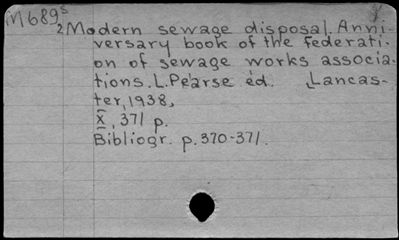 M689s
2 Modern sewage disposal. Anni-
versary book of the federati-
on of sewage works associa-
tions. L. Pearse ed. Lancas-
ter, 1938,
x, 371 p.
Bibliogr. p. 370-371.